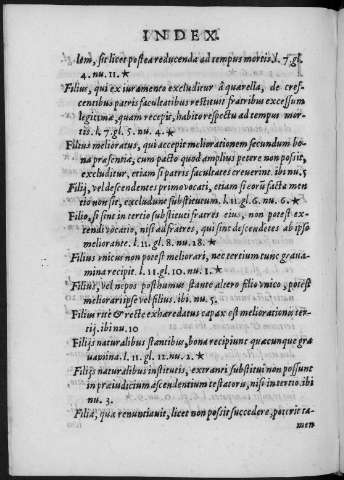 INDEX
lem, sit licet postea reducenda ad tempus mortis. l. 7. gl.
4. nu. 11. ★
Filius, qui ex iuramento excluditur à quarella, de cres-
centibus patris facultatibus restituit fratribus excessum
legitimæ, quam recepit, habito respectu ad tempus mor-
tis. l. 7. gl. 5. nu. 4. ★
Filius melioratus, qui accepit meliorationem secundum bo
na præsentia, cum pacto quod amplius petere non possit,
excluditur, etiam si patris facultates creuerint. ibi nu. 5
Filij, vel descendentes primo vocati, etiam si eorũ facta men
tio non sit, excludunt substitutum. l. 11. gl. 6. nu. 6. ★
Filio, si sint in tertio substituti fratres eius, non potest ex-
tendi vocatio, nisi ad fratres, qui sint descendẽtes ab ipso
meliorante. l. 11. gl. 8. nu. 28. ★
Filius vnicus non potest meliorari, nec tertium tunc graua-
mina recipit. l. 11. gl. 10. nu. 1. ★
Filius, vel nepos posthumus stante altero filio vnico, potest
meliorari ipse vel filius. ibi. nu. 5.
Filius rite & recte exhæredatus capax est meliorationis ter-
tij. ibi nu. 10
Filijs naturalibus stantibus, bona recipiunt quæcunque gra
uamina. l. 11. gl. 12. nu. 2. ★
Filijs naturalibus institutis, extranei substitui non possunt
in præiudicium ascendentium testatoris, nisi in tertio. ibi
nu. 3.
Filia, quæ renuntiauit, licet non possit succedere, poterit ta-
men